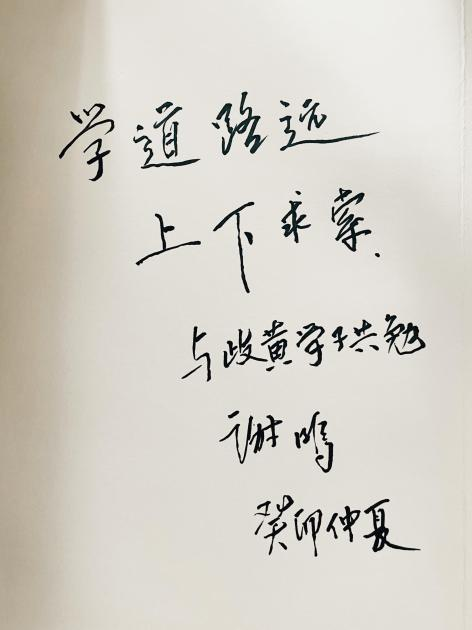 学道路远
上下求索.
与政黄学子共勉
谢鸣
癸卯仲夏